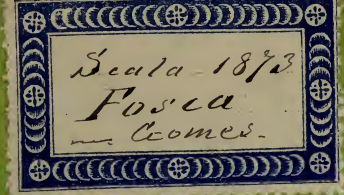 Scala 1873
Fosca
— Gomes.